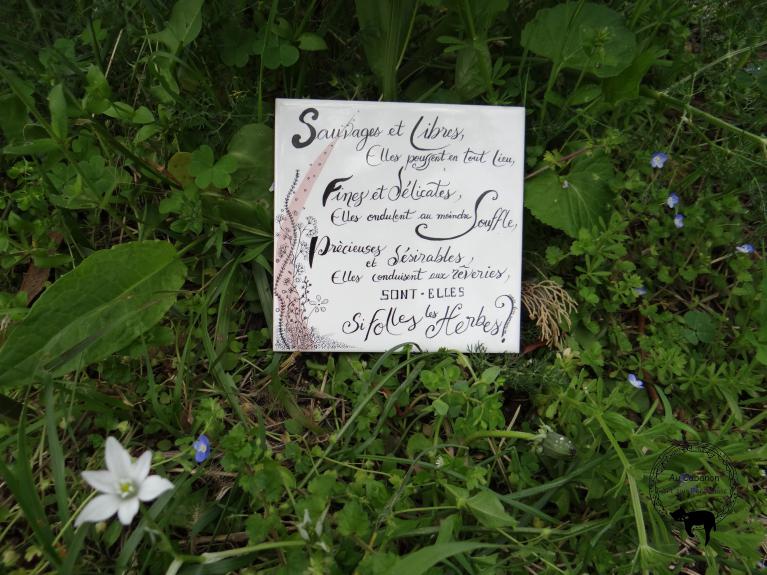 Sauvages et Libres,
Elles poussent en tout Lieu,
Fines et Délicates,
Elles ondulent au moindre Souffle,
Précieuses et Désirables,
Elles conduisent aux rêveries,
SONT-ELLES
Si Folles les Herbes?
Au Cabanon